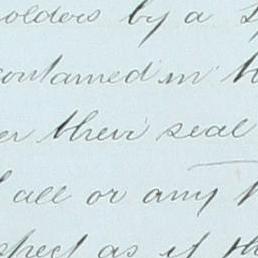 holders by a
contained in
their seal
all or any
as if